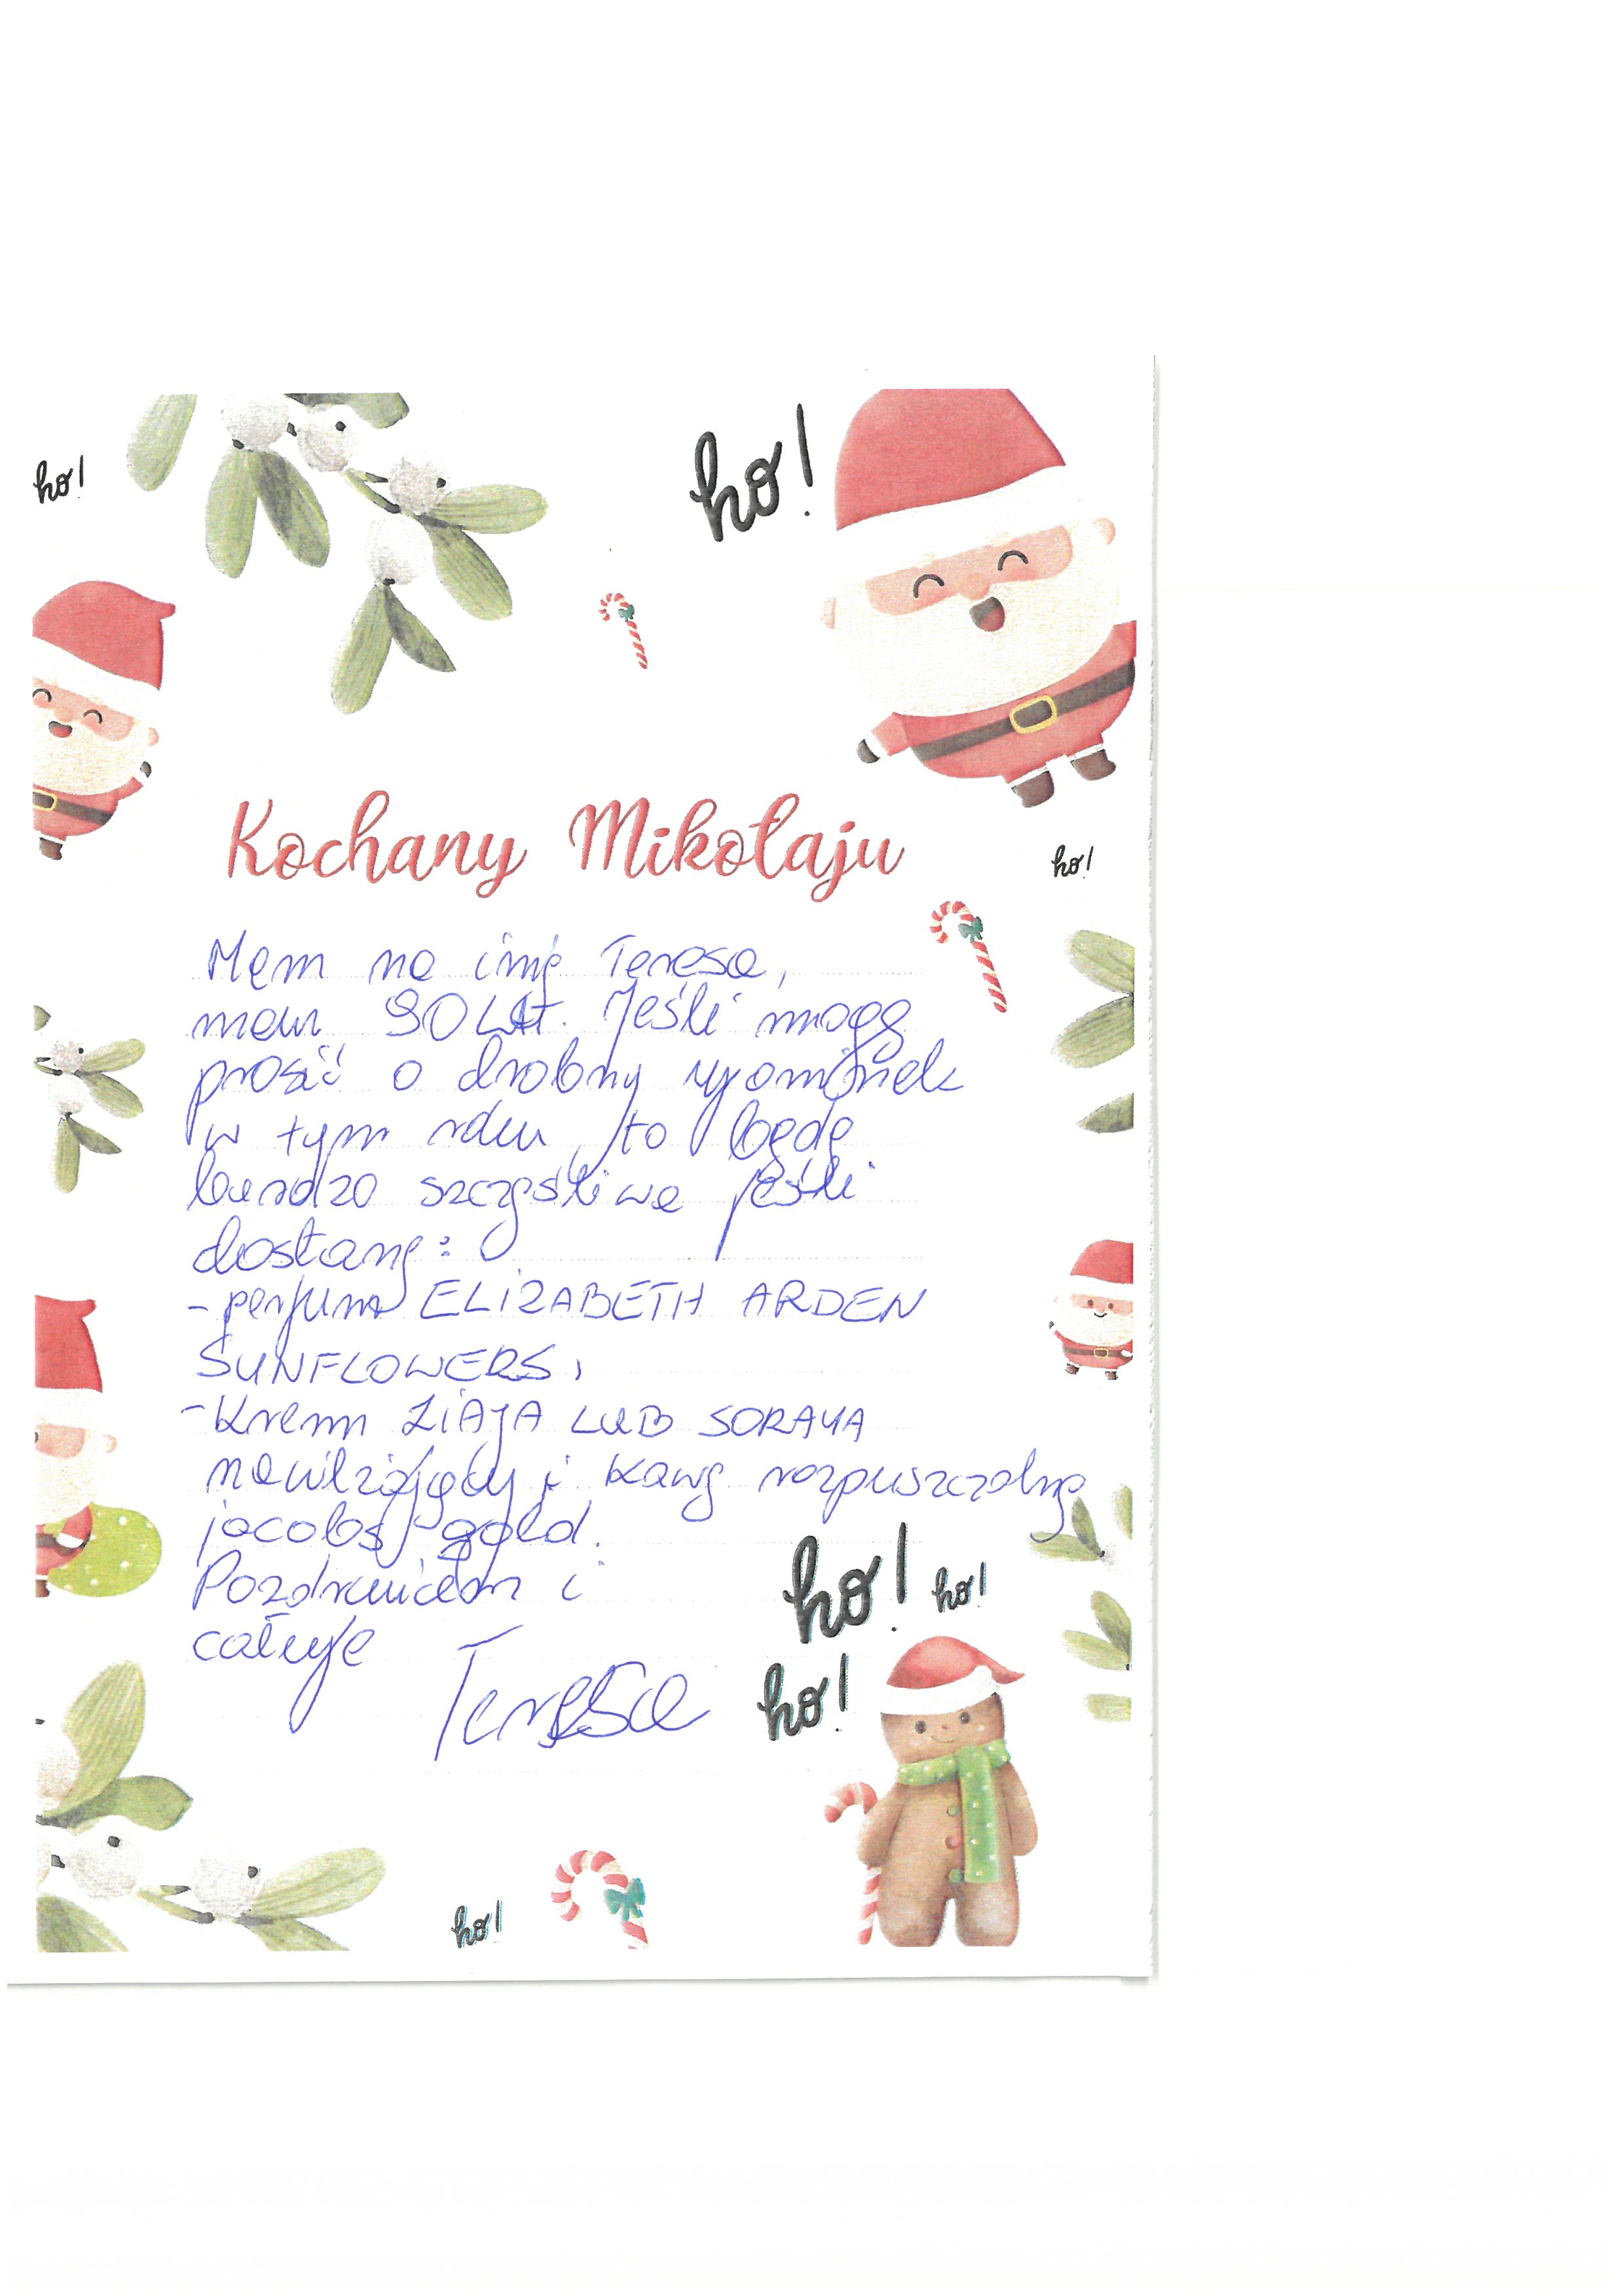 ho!
ho!
Kochany Mikołaju
ho!
Mam na imię Teresa,
mam 90 lat. Jeśli mogę
prosić o drobny upominek
w tym roku, to będę
bardzo szczęśliwa jeśli
dostanę:
- perfum ELIZABETH ARDEN
SUNFLOWERS,
- Krem ZIAJA LUB SORAYA
nawilżający i kawę rozpuszczalną
jacobs gold.
Pozdrawiam i
całuję
Teresa
ho! ho!
ho!
ho!